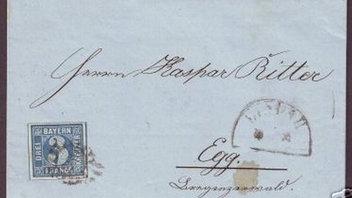 Herrn Kaspar Ritter
LINDAU
BAYERN
DREI
3
KREUZER
FRANCO
Egg.
Bregenzerwald.